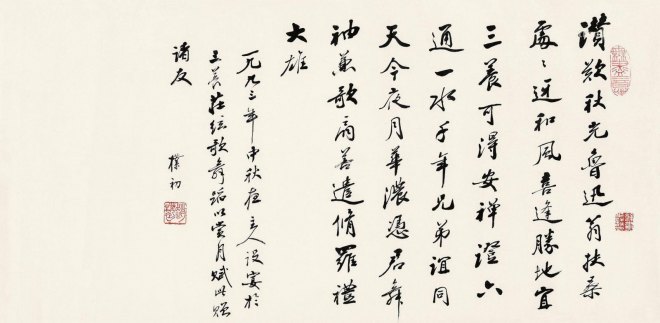 讚歎秋光魯迅翁扶桑
處〻迓和風喜逢勝地宜
三養可得安禪證六
通一水千年兄弟誼同
天今夜月華濃憑君舞
袖兼歌扇善遣脩羅禮
大雄
一九九三年中秋夜主人設宴於
三養莊絃歌舞蹈以賞月賦此贈
諸友
樸初